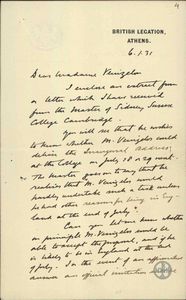 4
BRITISH LEGATION,
ATHENS.
6.1.31
Dear Madame Venizelos
I enclose an extract from
a letter which I have received
from the Master of Sidney Sussex
College Cambridge.
You will see that he wishes
to know whether M. Venizelos would
deliver the Inaugural Address
at the College on July 28 or 29 next.
The Master goes on to say that he
realises that M. Venizelos could
hardly undertake such a task unless
he had other reasons for being in Eng-
land at the end of July.
Can you let me know whether
on principle M. Venizelos would be
able to accept the proposal, and if he
is likely to be in England at the end
of July. In the event of an affirmative
answer an official invitation